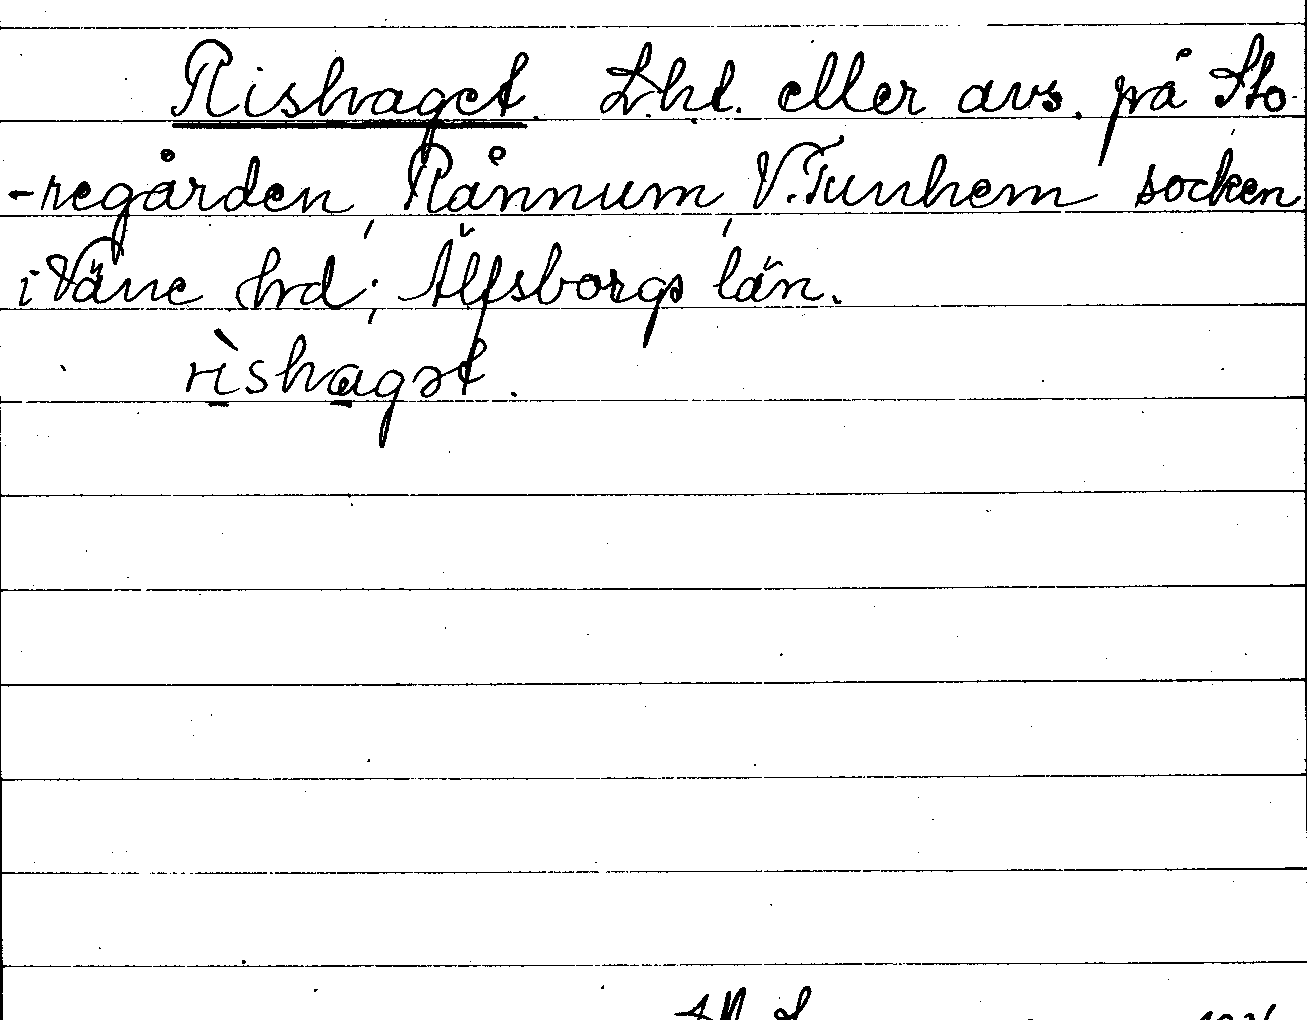 Rishaget. Lht. eller avs. på Sto
-regården, Rånnum, V. Tunhem socken
i Väne hrd; Älfsborgs län.
rìshagət.